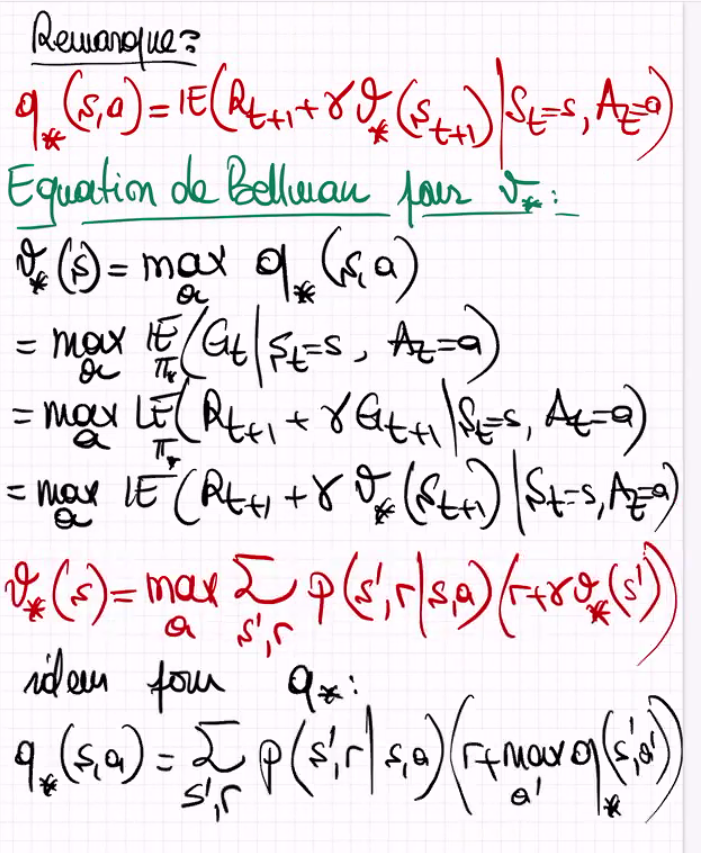 Remarque:
q_*(s,a) = IE(R_{t+1} + γ v_*(S_{t+1}) | S_t=s, A_t=a)
Equation de Bellman pour v_* :
v_*(s) = max_a q_*(s,a)
= max_a IE_{π_*}(G_t | S_t=s, A_t=a)
= max_a IE_{π_*}(R_{t+1} + γ G_{t+1} | S_t=s, A_t=a)
= max_a IE(R_{t+1} + γ v_*(S_{t+1}) | S_t=s, A_t=a)
v_*(s) = max_a Σ_{s',r} p(s',r | s,a)(r + γ v_*(s'))
idem pour q_* :
q_*(s,a) = Σ_{s',r} p(s',r | s,a)(r + max_{a'} q_*(s',a'))